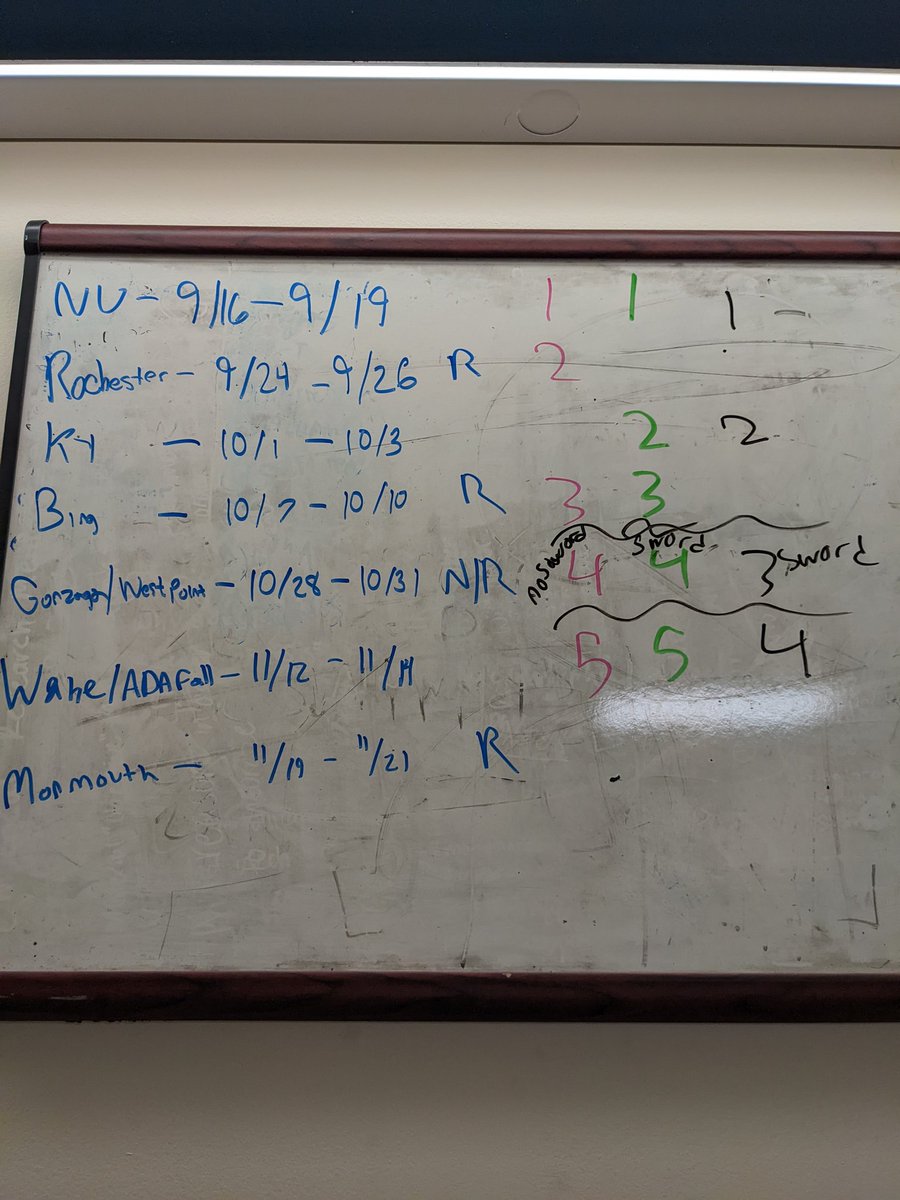 NU - 9/16 - 9/19 1 1 1 -
Rochester - 9/24 - 9/26 R 2
Ky - 10/1 - 10/3 2 2
Bing - 10/7 - 10/10 R 3 3
Gonzaga/West Point - 10/28 - 10/31 N/R 4 sword 4 3 sword
Wake/ADA Fall - 11/12 - 11/14 5 5 4
Monmouth - 11/19 - 11/21 R